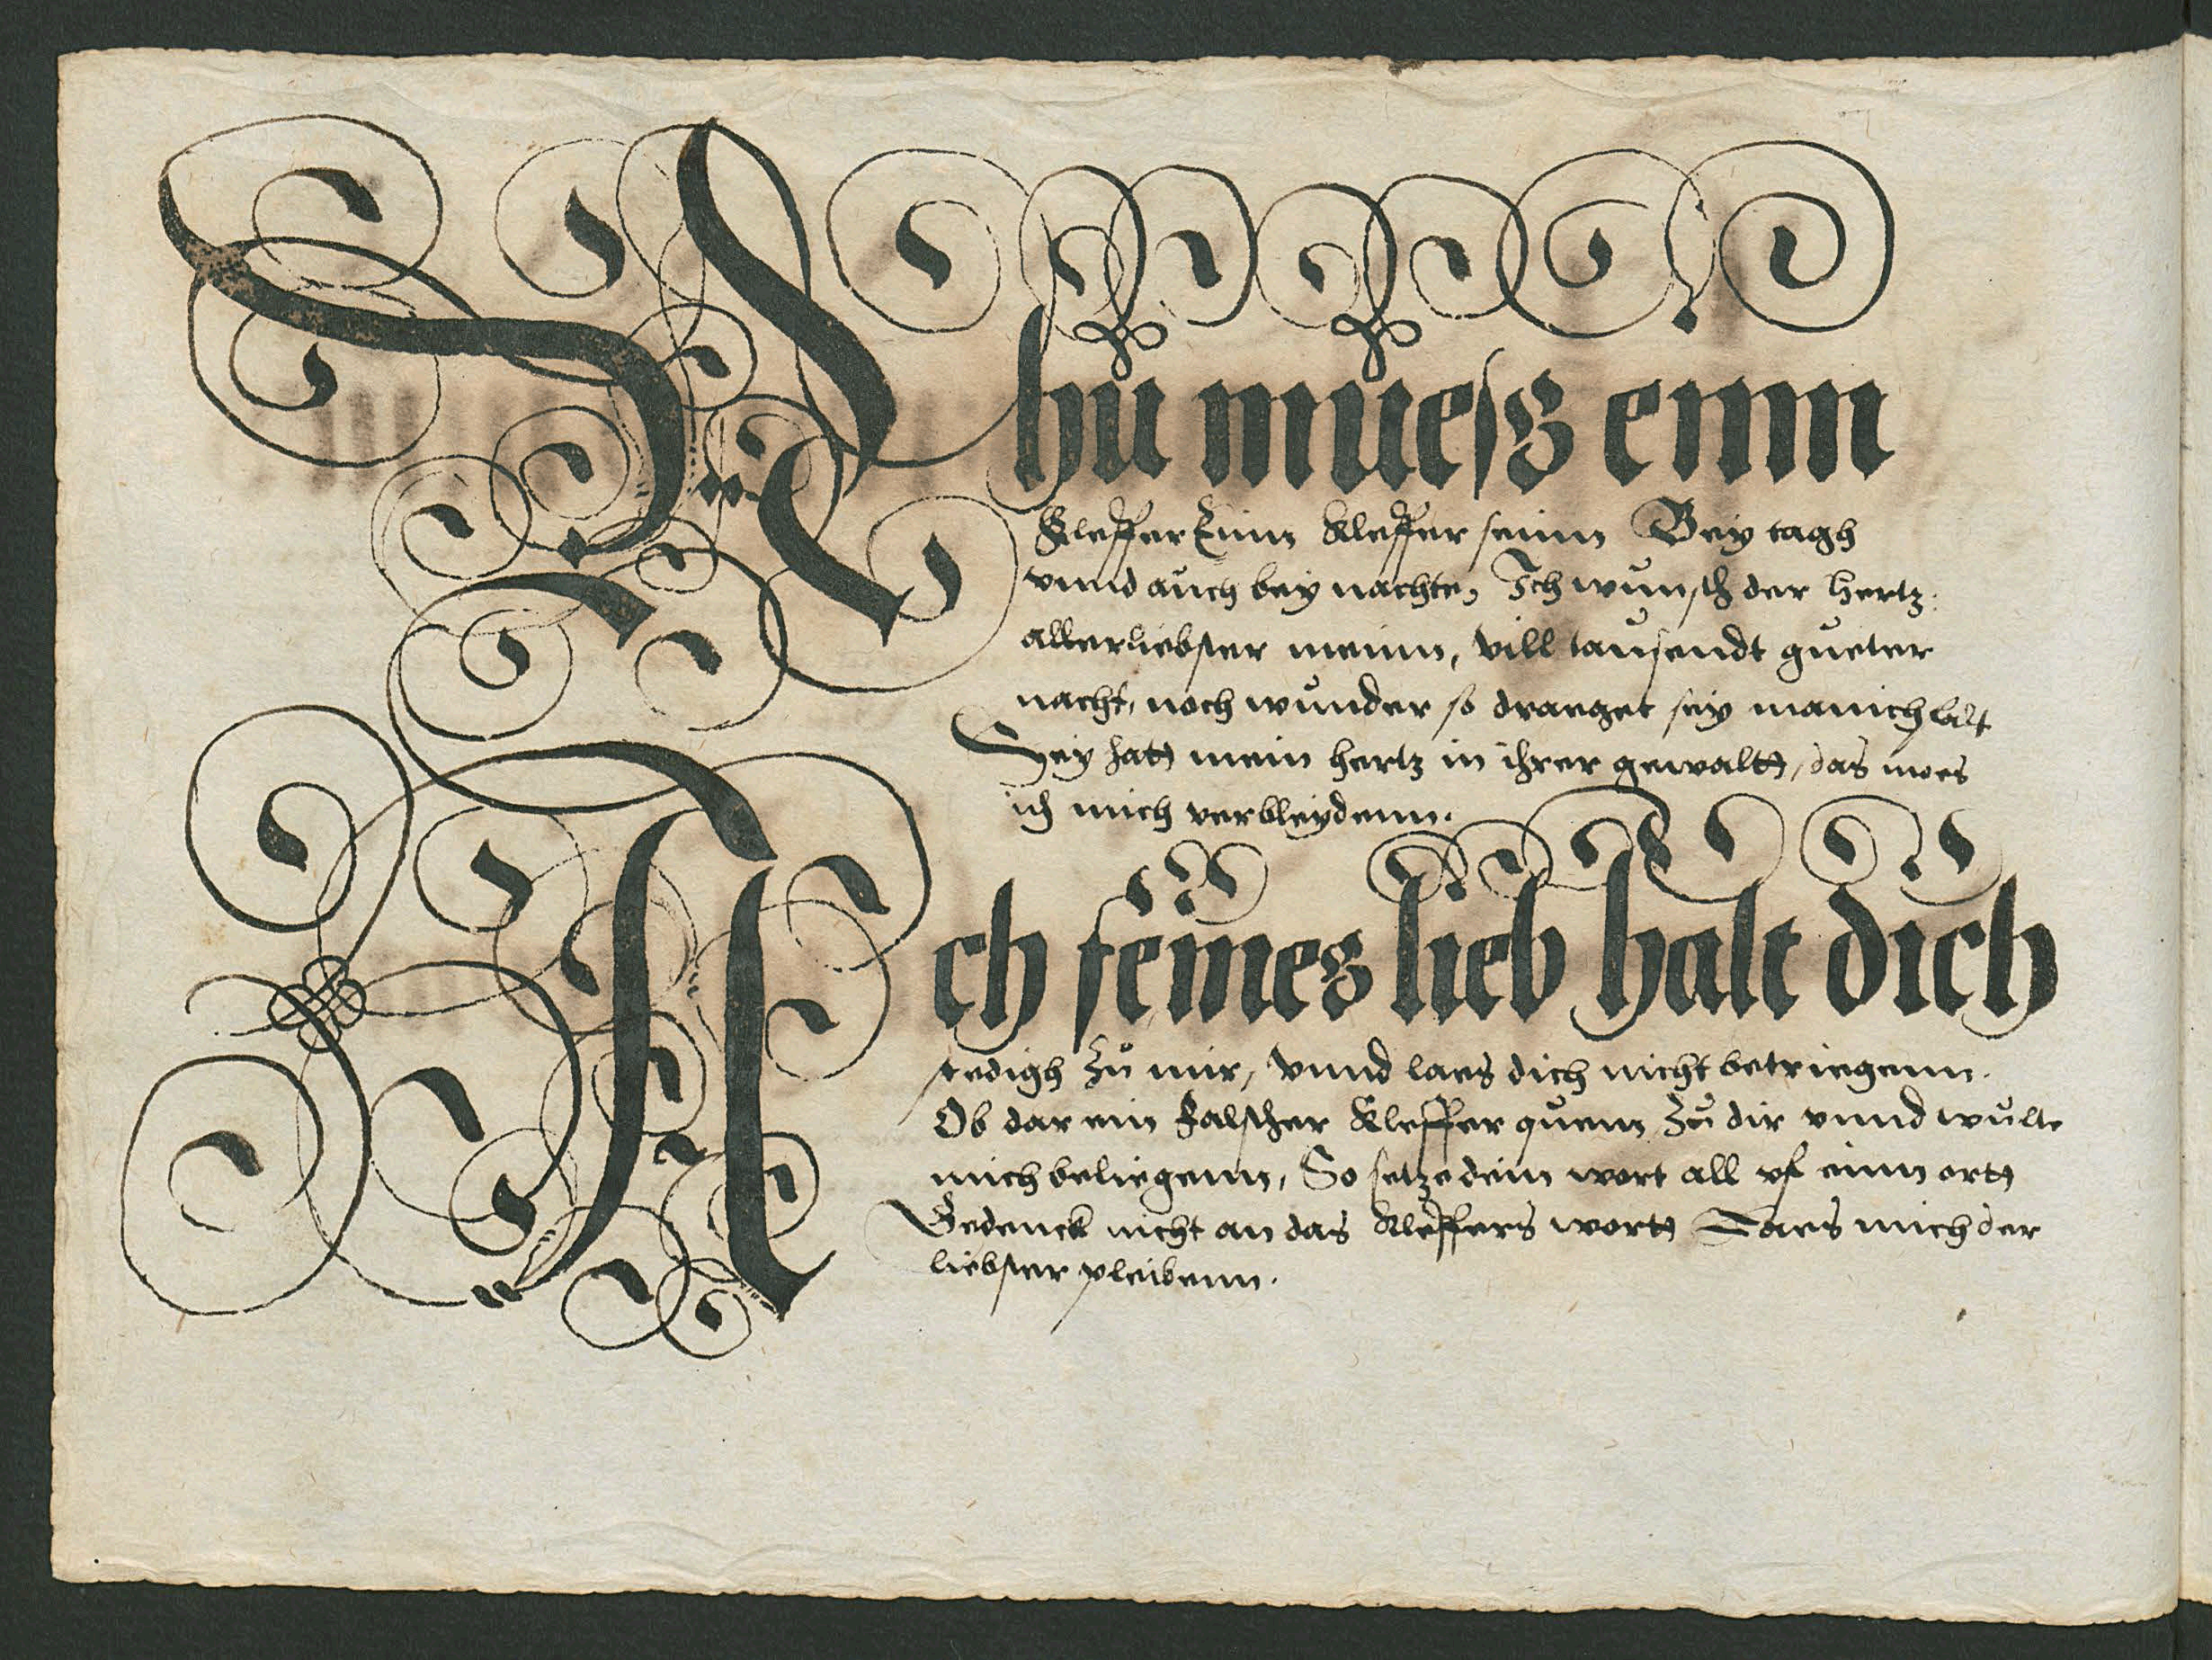 Nhu muesz einn
Kleffer Einn kleffer seinn Bey tagh
vnnd auch bey nachte, Ich wunsch der hertz:
allerliebster meinn, vill tausendt gueter
nacht, noch wunder so draeget sey manichfalt
Sey hatt mein hertz in ihrer gewaltt, das moes
ich mich verbleydenn.
Ach feines lieb halt dich
stedigh zu mir, vnnd laes dich nicht betriegenn.
Ob dar ein falscher kleffer quem zu dir vnnd wulte
mich beliegenn, So setze dein wort all vf einn ortt
Gedenck nicht an das kleffers wortt Laes mich der
liebster pleibenn.